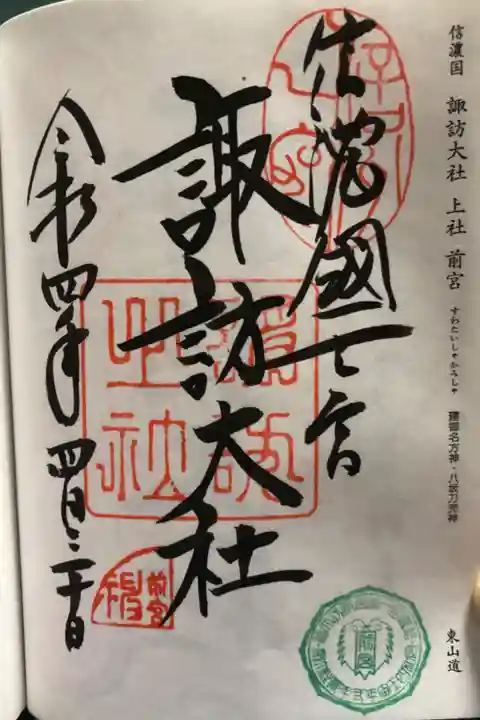 信濃国 諏訪大社 上社 前宮 すわたいしゃかみしゃ 建御名方神・八坂刀売神 東山道
信濃國一之宮
諏訪大社
令和四年四月三十日
諏訪
之社
前宮
前宮